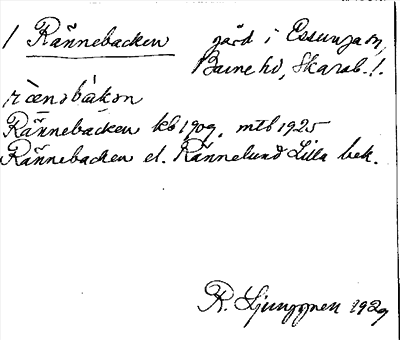 1 Rännebacken gård i Essunga sn,
Barne hd, Skarab. l.
Rännebacken kb 1909, mtb 1925
Rännebacken el. Rännelund Lilla bek.
R. Ljunggren 1929